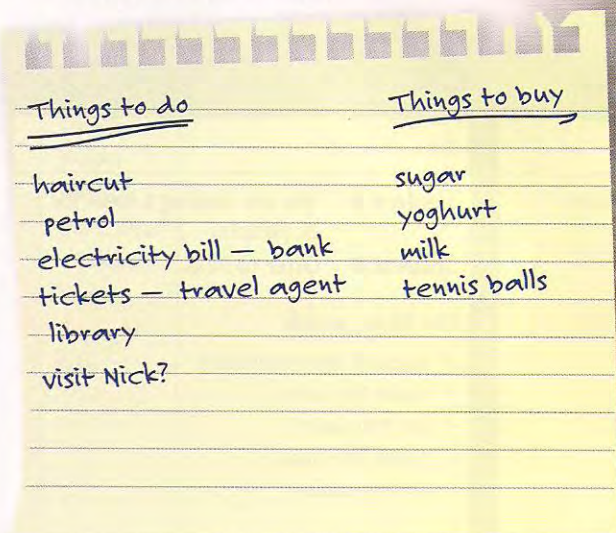 Things to do
haircut
petrol
electricity bill — bank
tickets — travel agent
library
visit Nick?
Things to buy
sugar
yoghurt
milk
tennis balls